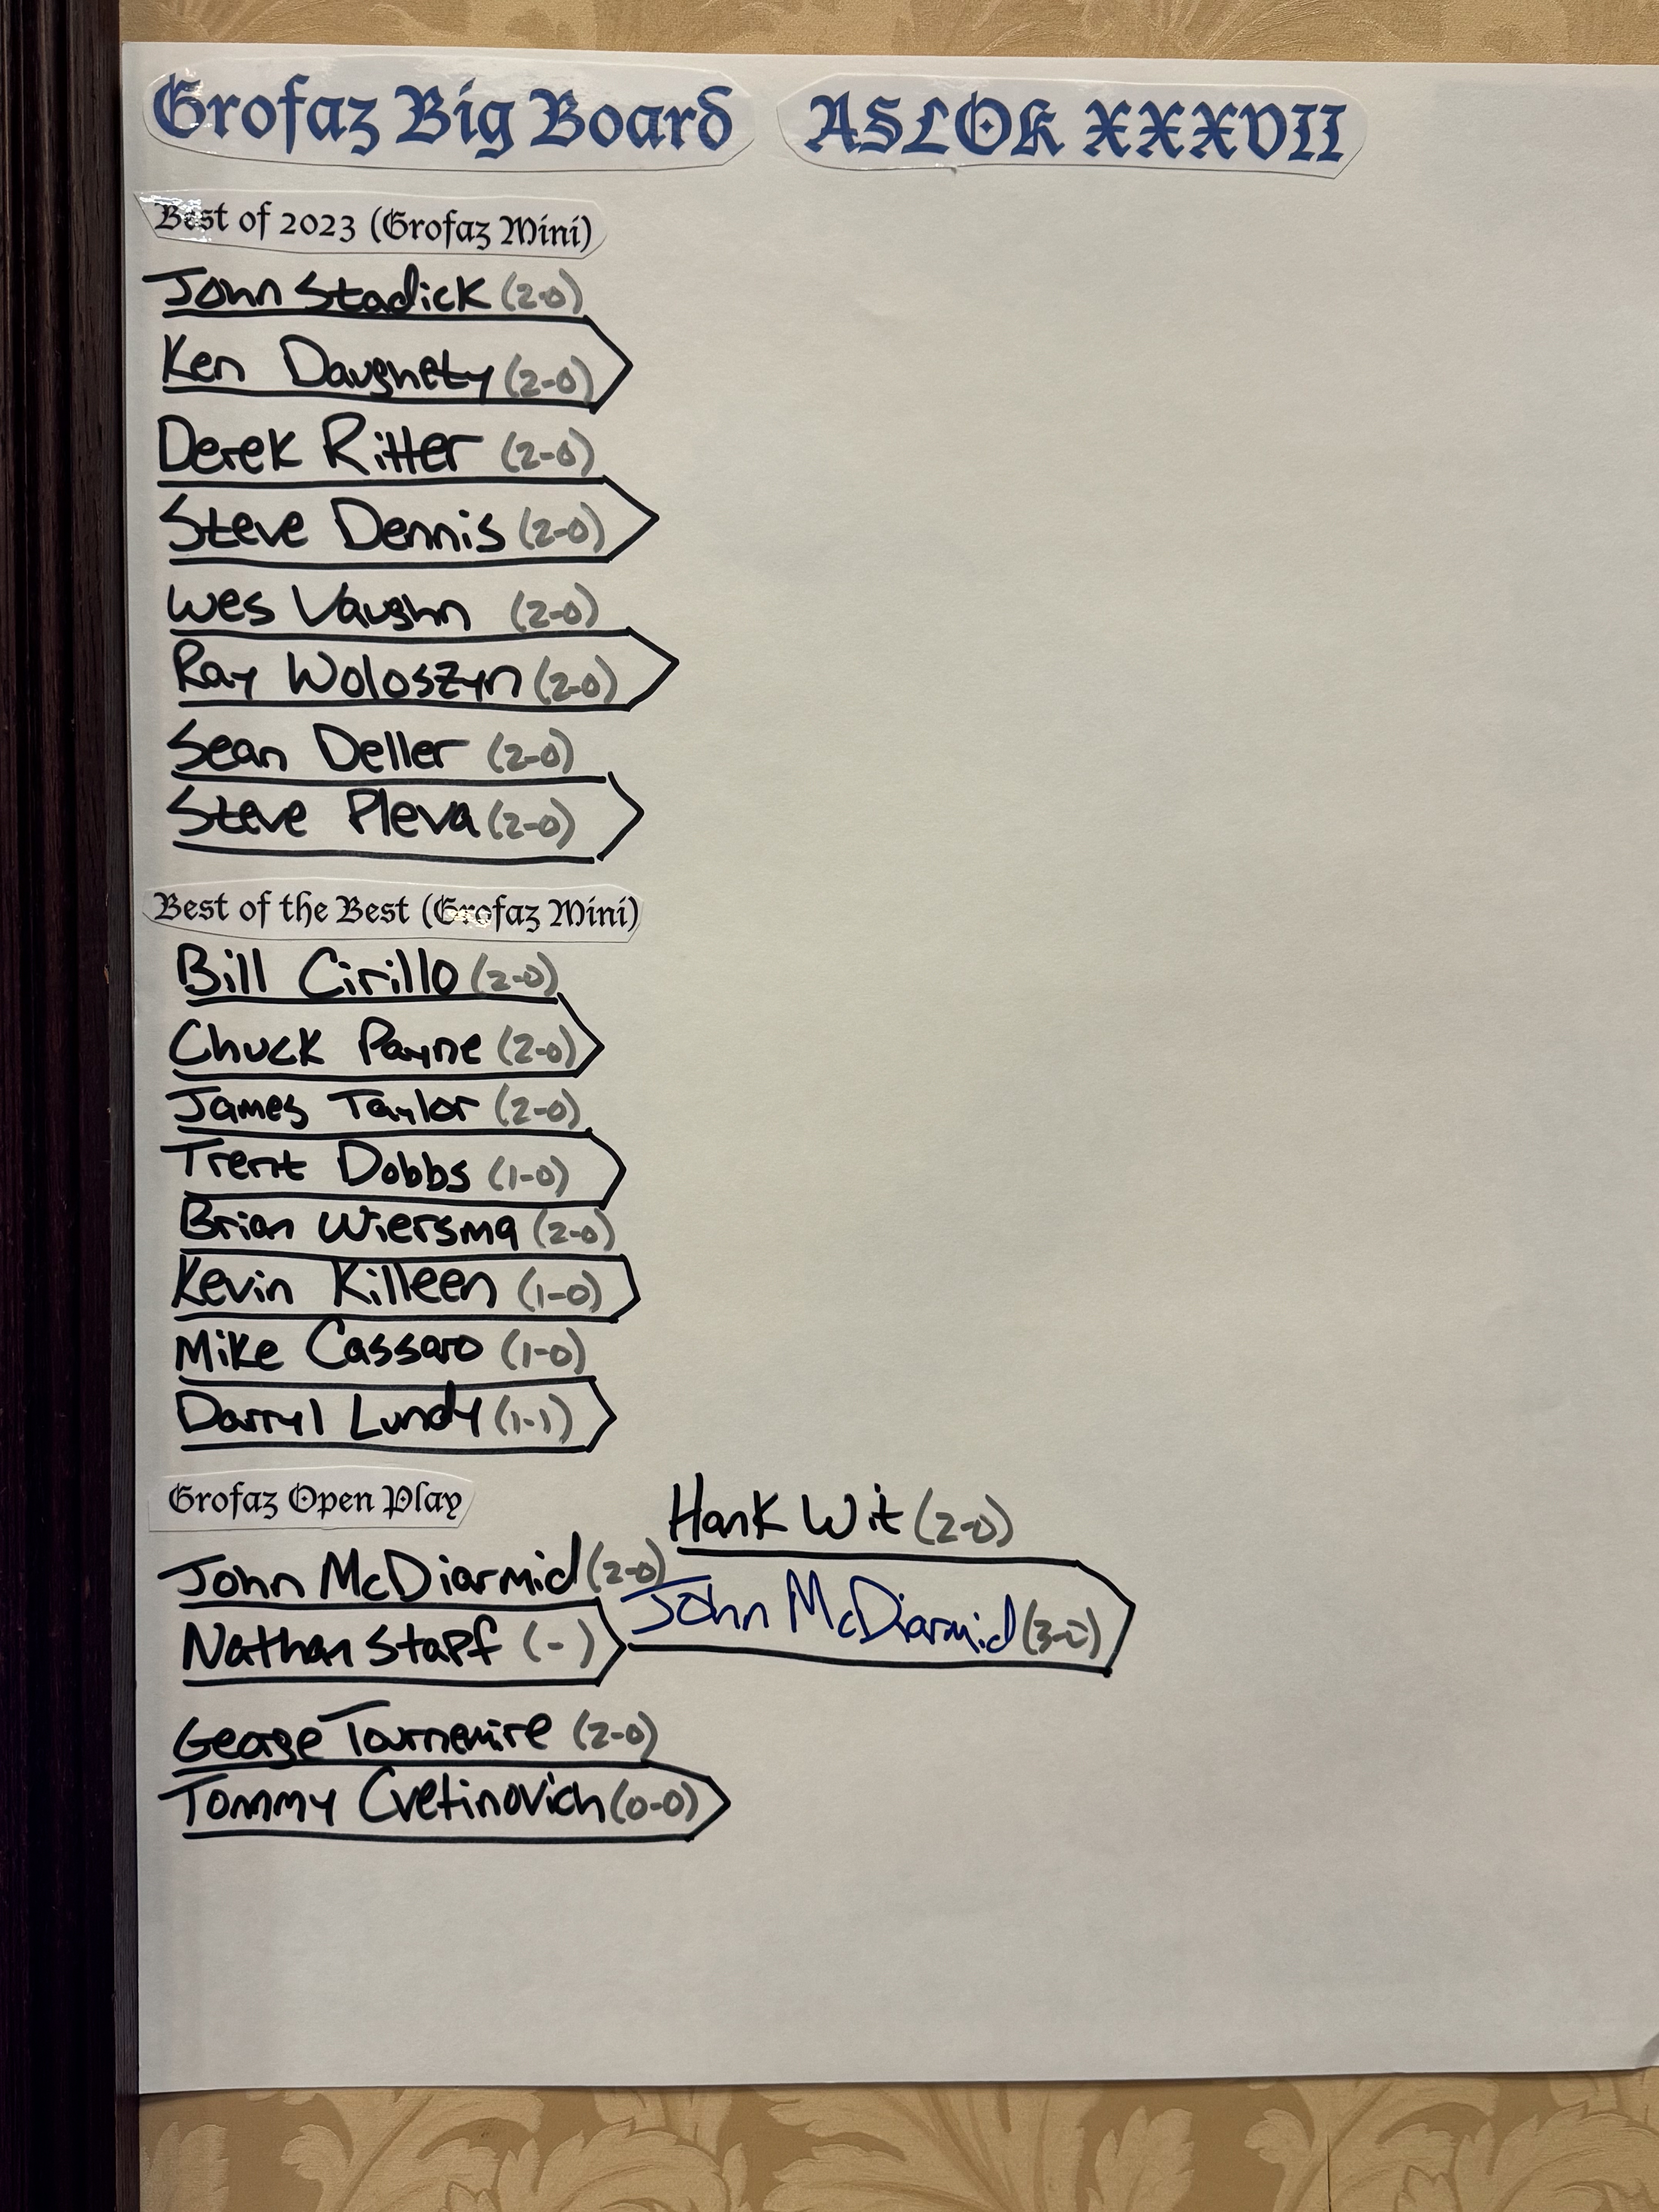 Grofaz Big Board ASLOK XXXVII
Best of 2023 (Grofaz Mini)
John Stadick (2-0)
Ken Daughety (2-0)
Derek Ritter (2-0)
Steve Dennis (2-0)
Wes Vaughn (2-0)
Ray Woloszyn (2-0)
Sean Deller (2-0)
Steve Pleva (2-0)
Best of the Best (Grofaz Mini)
Bill Cirillo (2-0)
Chuck Payne (2-0)
James Taylor (2-0)
Trent Dobbs (1-0)
Brian Wiersma (2-0)
Kevin Killeen (1-0)
Mike Cassaro (1-0)
Darryl Lundy (1-1)
Grofaz Open Play
Hank Wit (2-0)
John McDiarmid (2-0)
John McDiarmid (3-0)
Nathan Stapf (-)
George Tournemire (2-0)
Tommy Cvetinovich (0-0)